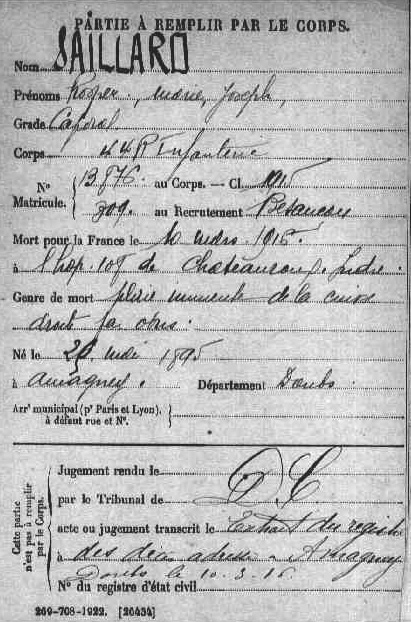 PARTIE À REMPLIR PAR LE CORPS.
Nom SAILLARD
Prénoms Prosper, Marie, Joseph,
Grade Caporal
Corps 44 R Infanterie
N° Matricule. 13.876 au Corps. — Cl. 1915
709. au Recrutement Besancon
Mort pour la France le 10 mars 1915.
à l'hop. 107 de Chateauroux. Indre.
Genre de mort plaie de la cuisse
droit par obus.
Né le 20 1895
à Amagney. Département Doubs.
Arr<sup>t</sup> municipal (p<sup>r</sup> Paris et Lyon),
à défaut rue et N°.
Cette partie n'est pas à remplir par le Corps.
Jugement rendu le
par le Tribunal de D C
acte ou jugement transcrit le Extrait du registre
à des décès adressé à Amagney
Doubs le 10.3.15
N° du registre d'état civil
269-708-1922. [26434]